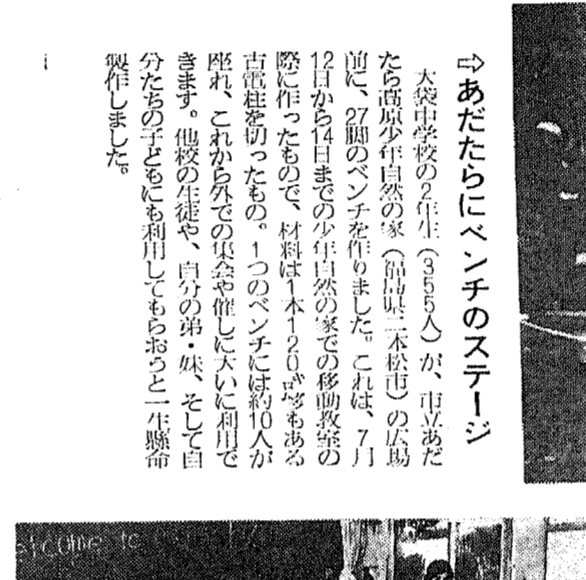 ⇨あだたらにベンチのステージ
大袋中学校の2年生(355人)が、市立あだ
たら高原少年自然の家(福島県二本松市)の広場
前に、27脚のベンチを作りました。これは、7月
12日から14日までの少年自然の家での移動教室の
際に作ったもので、材料は1本120㌔㌘もある
古電柱を切ったもの。1つのベンチには約10人が
座れ、これから外での集会や催しに大いに利用で
きます。他校の生徒や、自分の弟・妹、そして自
分たちの子どもにも利用してもらおうと一生懸命
製作しました。
elcome to